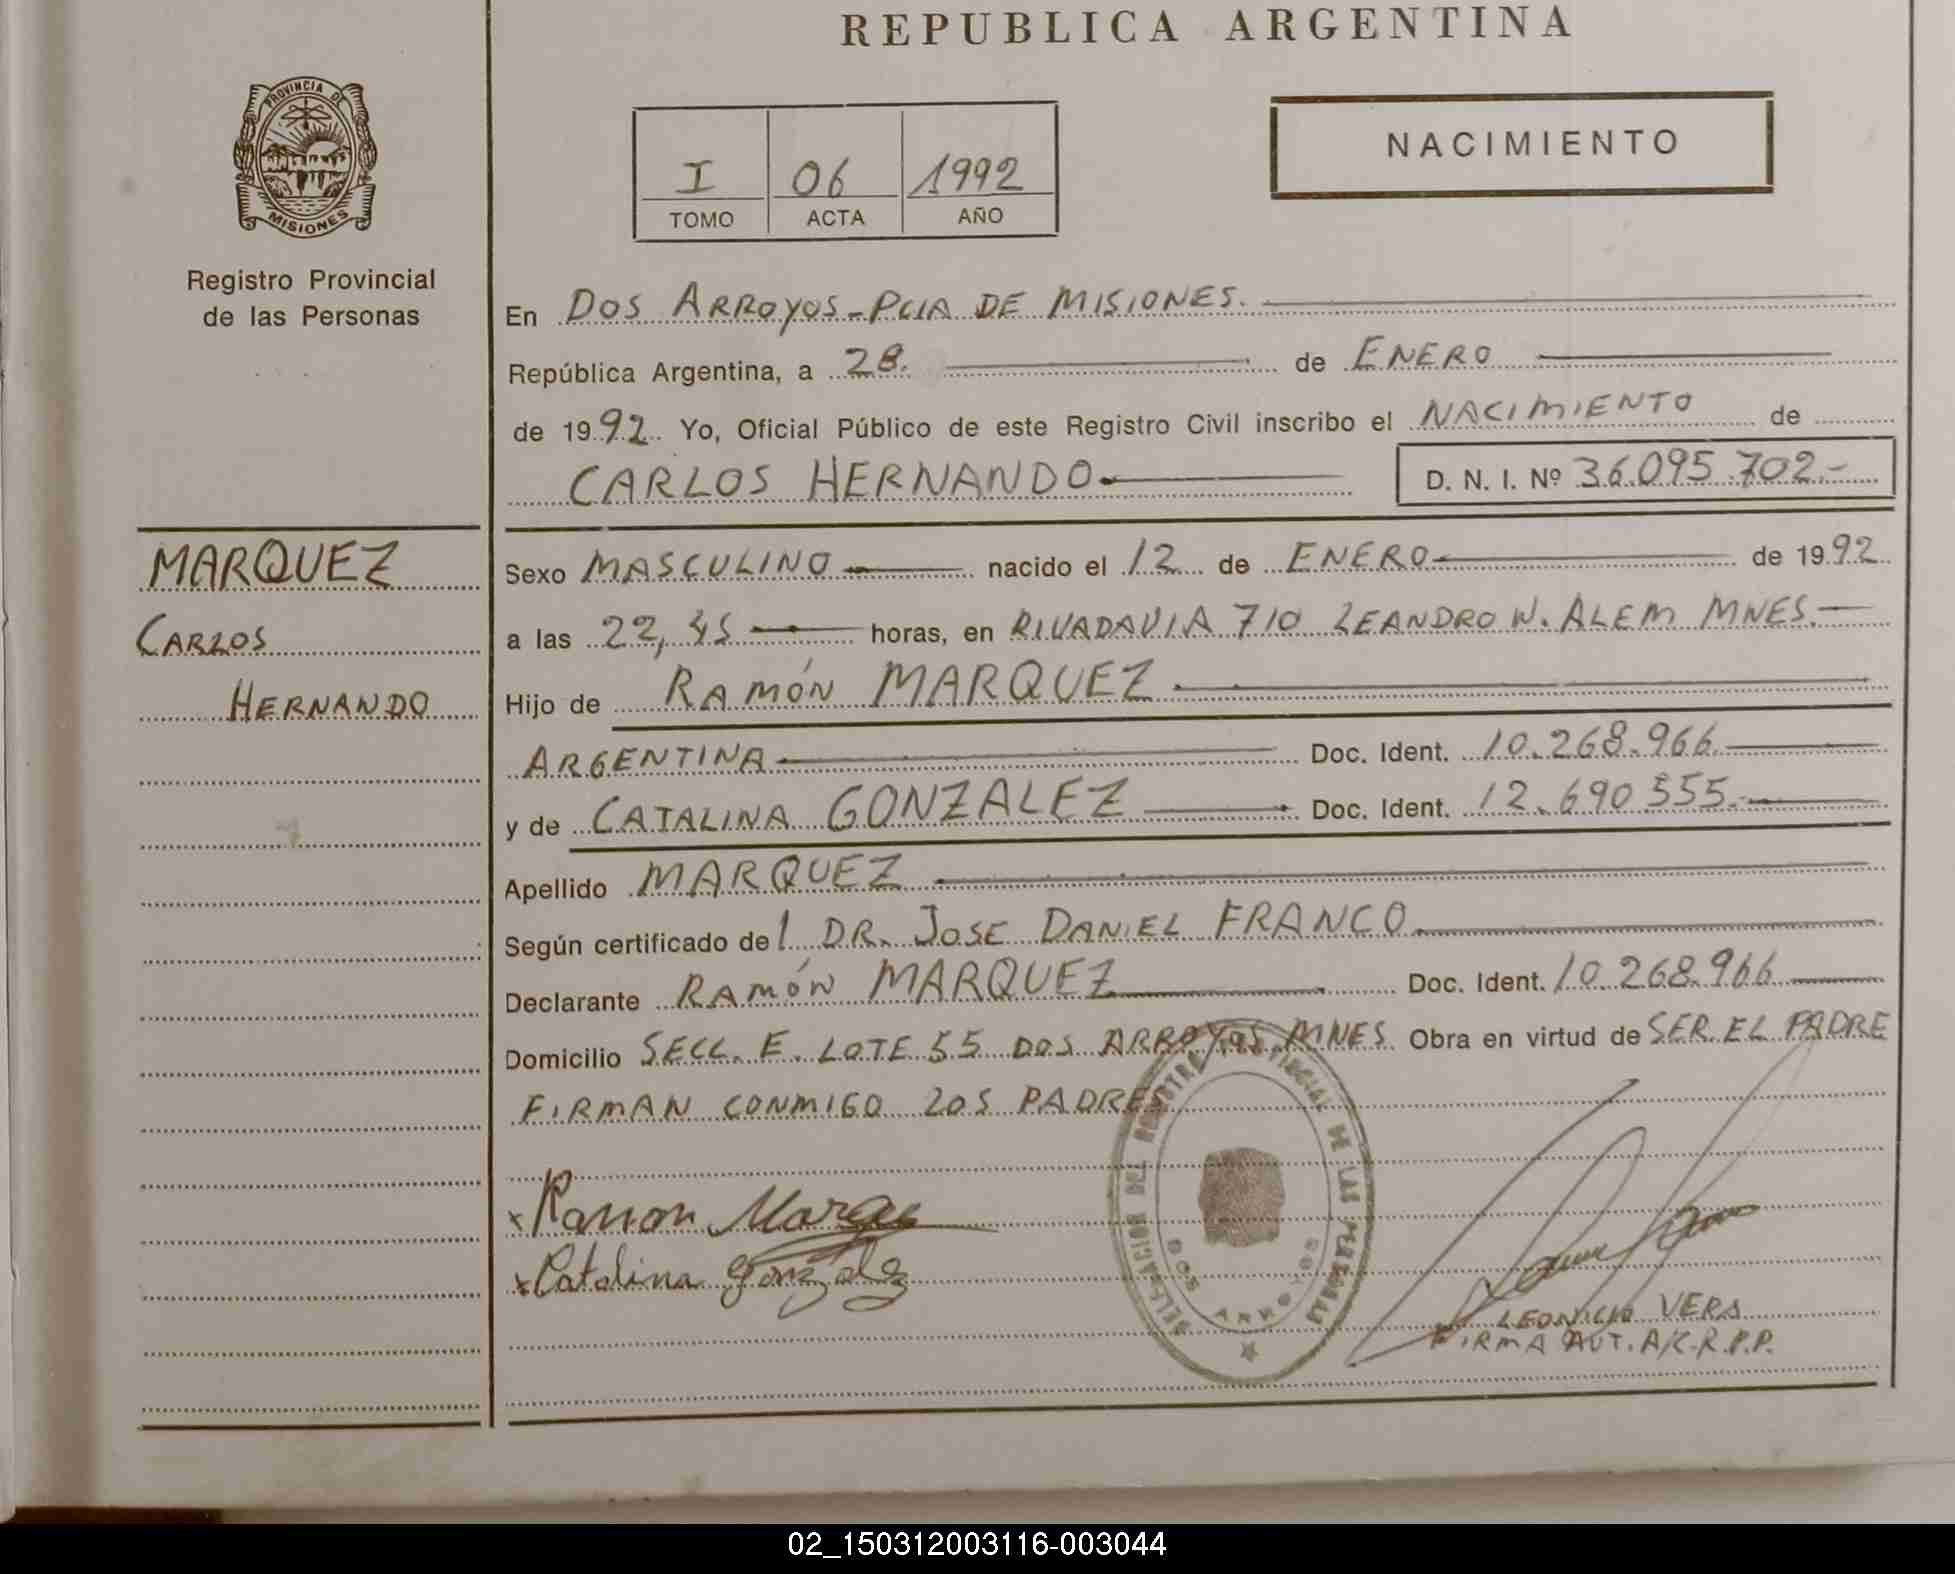 REPUBLICA ARGENTINA
PROVINCIA DE
MISIONES
Registro Provincial
de las Personas
I 06 1992
TOMO ACTA AÑO
NACIMIENTO
En DOS ARROYOS-PCIA DE MISIONES.
República Argentina, a 28. de ENERO
de 1992. Yo, Oficial Público de este Registro Civil inscribo el NACIMIENTO de
CARLOS HERNANDO D. N. I. Nº 36.095.702.-
MARQUEZ
CARLOS
HERNANDO
Sexo MASCULINO nacido el 12 de ENERO de 1992
a las 22,45 horas, en RIVADAVIA 710 LEANDRO N. ALEM MNES.
Hijo de RAMÓN MARQUEZ
ARGENTINA Doc. Ident. 10.268.966
y de CATALINA GONZALEZ Doc. Ident. 12.690.555.-
Apellido MARQUEZ
Según certificado del DR. JOSE DANIEL FRANCO
Declarante RAMÓN MARQUEZ Doc. Ident. 10.268.966
Domicilio SECC. E. LOTE 55 DOS ARROYOS, MNES. Obra en virtud de SER EL PADRE
FIRMAN CONMIGO LOS PADRES
x Ramon Marque
x Catalina Gonzalez
DELEGACION DEL REGISTRO PROVINCIAL DE LAS PERSONAS
DOS ARROYOS
LEONICIO VERA
FIRMA AUT. A/C-R.P.P.
02_150312003116-003044